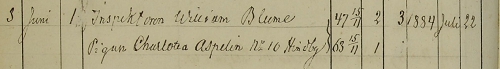 3 Juni 1 Inspektoren William Blume 47 15/11 2 3 1884 Juli 22
Pigan Charlotta Aspelin No 10 Hindby 63 15/11 1